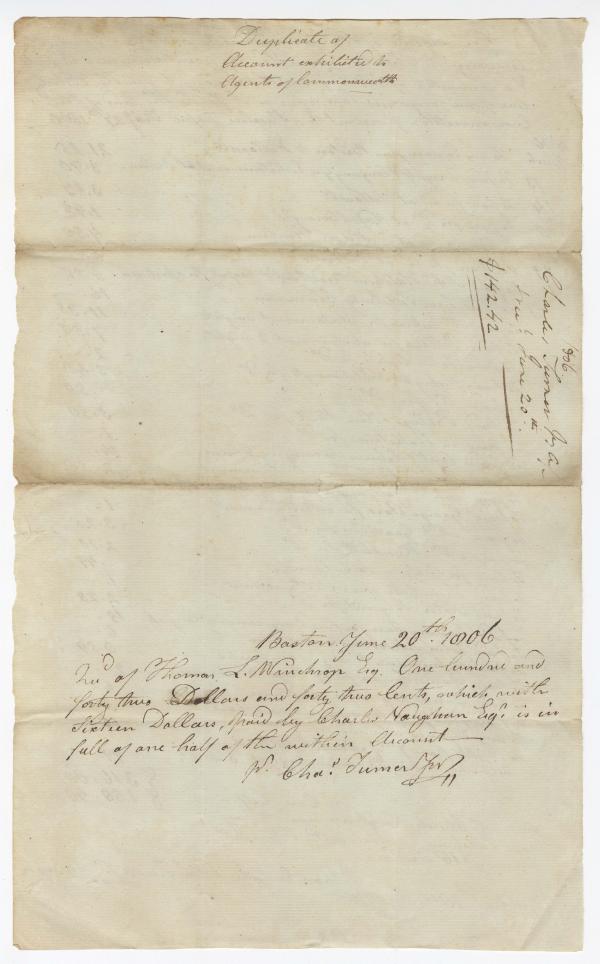 Duplicate of
Account exhibited to
Agents of Commonwealth
1806
Charles Turner Jr
June 20th
$142.42
Boston June 20th 1806
Recd of Thomas L. Winthrop Esq. One hundred and
forty two Dollars and forty two Cents, which, with
Sixteen Dollars, paid by Charles Vaughan Esqr is in
full of one half of the within Account
Chas Turner Jr